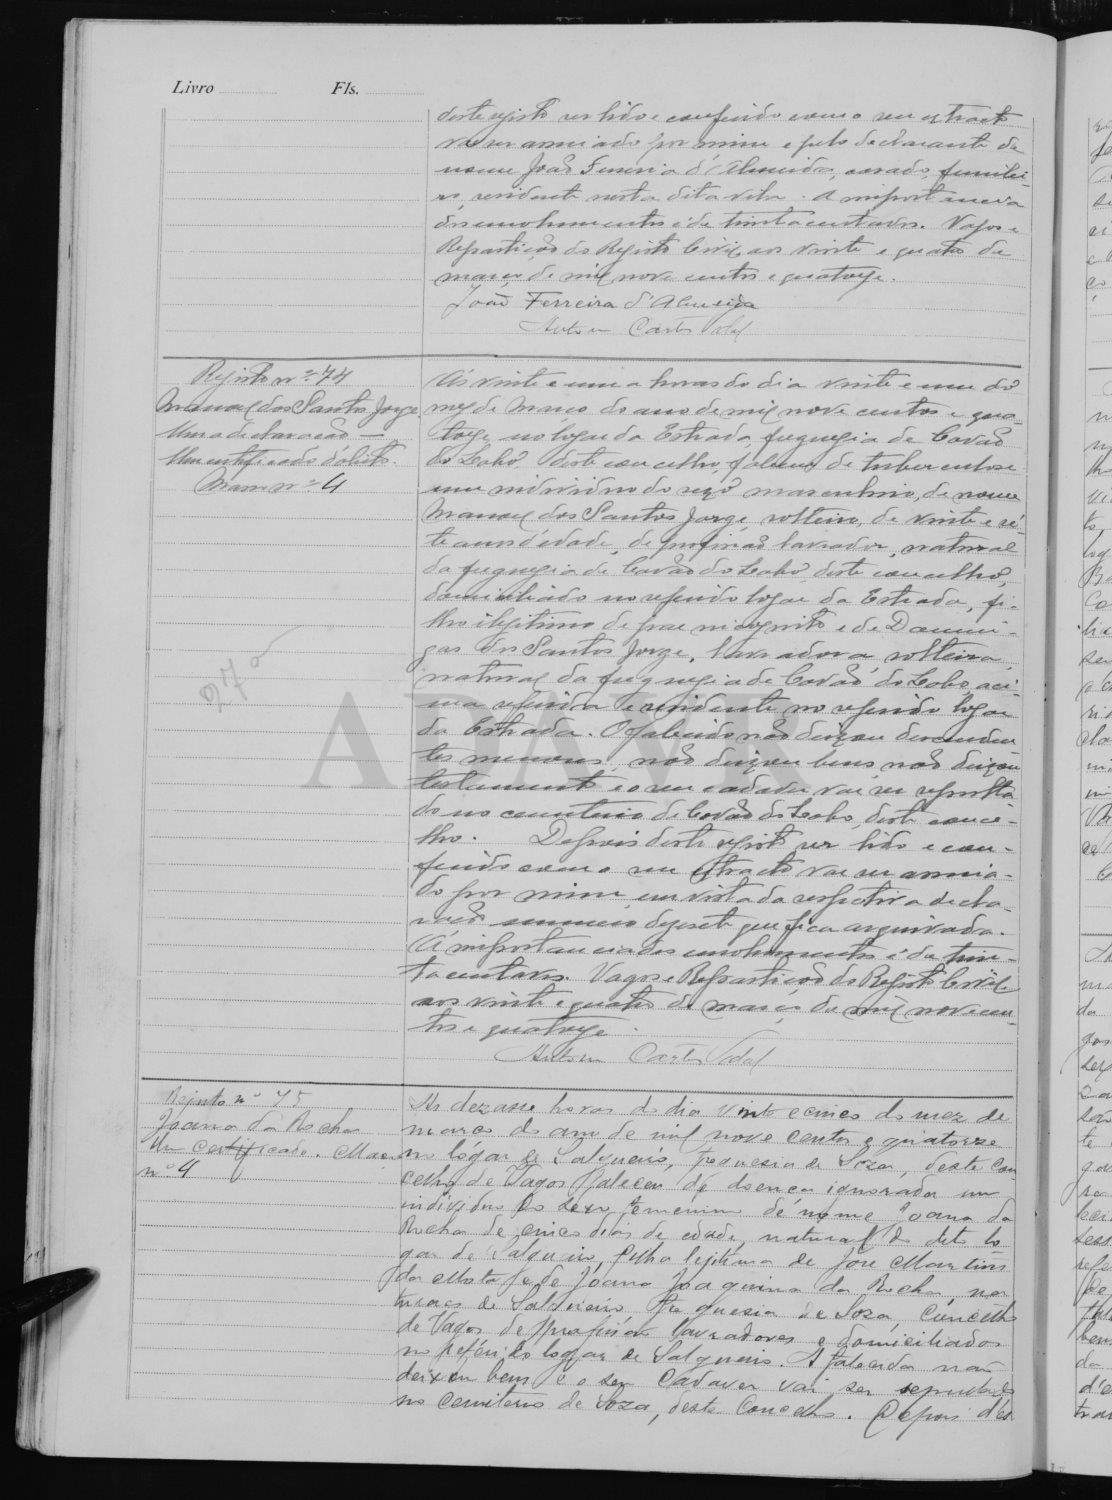 Livro Fls.
deste registo ser lido e conferido com o seu extracto
vae ser assinado por mim e pelo declarante de
nome João Ferreira d'Almeida, casado, funilei-
ro, residente nesta dita vila. A importancia
dos emolumentos é de trinta centavos. Vagos e
Repartição do Registo Civil aos vinte e quatro de
março de mil nove centos e quatorze.
João Ferreira d'Almeida
Antonio Carlos Vidal
Registo nº 74
Manoel dos Santos Jorge
Uma declaração —
Um certificado d'obito.
Maço nº 4
27
Ás vinte e uma horas do dia vinte e um do
mez de Março do ano de mil nove centos e qua-
torze, no logar da Estrada, freguezia de Covão
do Lobo, deste concelho, faleceu de tuberculose
um individuo do sexo masculino, de nome
Manoel dos Santos Jorge, solteiro, de vinte e se-
te anos d'edade, de profissão lavrador, natural
da freguezia de Covão do Lobo, deste concelho,
domiciliado no referido logar da Estrada, fi-
lho ilegitimo de pae incognito e de Domin-
gas dos Santos Jorge, lavradora, solteira,
natural da freguezia de Covão do Lobo, aci-
ma referida e residente no referido logar
da Estrada. O falecido não deixou descenden-
tes menores, não deixou bens, não deixou
testamento e o seu cadaver vae ser sepulta-
do no cemiterio de Covão do Lobo, deste conce-
lho. Depois deste registo ser lido e con-
ferido com o seu extracto vae ser assina-
do por mim em vista da respectiva decla-
ração numero dezasete que fica arquivada.
A importancia dos emolumentos é de trin-
ta centavos. Vagos e Repartição do Registo Civil
aos vinte e quatro de março de mil novecen-
tos e quatorze.
Antonio Carlos Vidal
Registo nº 75
Joana da Rocha
Um certificado. Maço
nº 4
Ás dezasse horas do dia vinte e cinco do mez de
março do ano de mil nove centos e quatorze
no lógar de Salgueiro, freguesia de Soza, deste con
celho de Vagos faleceu de doença ignorada um
individuo do sexo femenino de nome Joana da
Rocha de cinco dias de edade, natural do dito lo-
gar de Salgueiro, filha legitima de José Martins
da Mota e de Joana Joaquina da Rocha, na
turaes de Salgueiro, freguesia de Soza, concelho
de Vagos, de profissão lavradores e domiciliados
no referido logar de Salgueiro. A falecida não
deixou bens e o seu cadaver vai ser sepultado
no cemiterio de Soza, deste concelho. Depois d'es
ADAVR